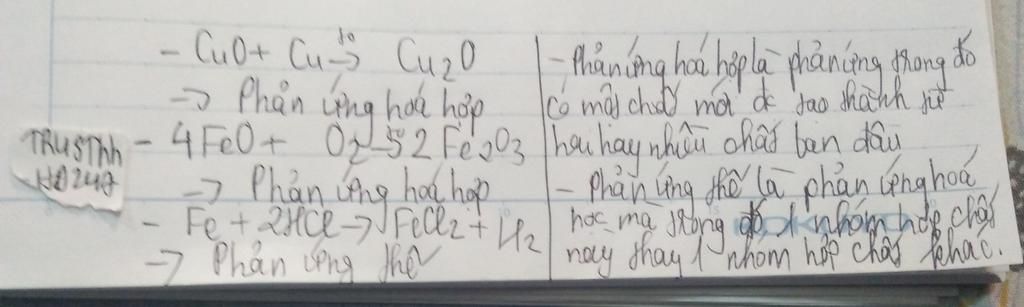 - CuO + Cu t°→ Cu₂O
→ Phản ứng hoá hợp
- 4FeO + O₂ t°→ 2Fe₂O₃
→ Phản ứng hoá hợp
- Fe + 2HCl → FeCl₂ + H₂
→ Phản ứng thế
TRUSTnh
HD247
- Phản ứng hoá hợp là phản ứng trong đó
có một chất mới đc tạo thành từ
hai hay nhiều chất ban đầu
- Phản ứng thế là phản ứng hoá
học mà trong đó 1 nhóm hợp chất
này thay 1 nhóm hợp chất khác.